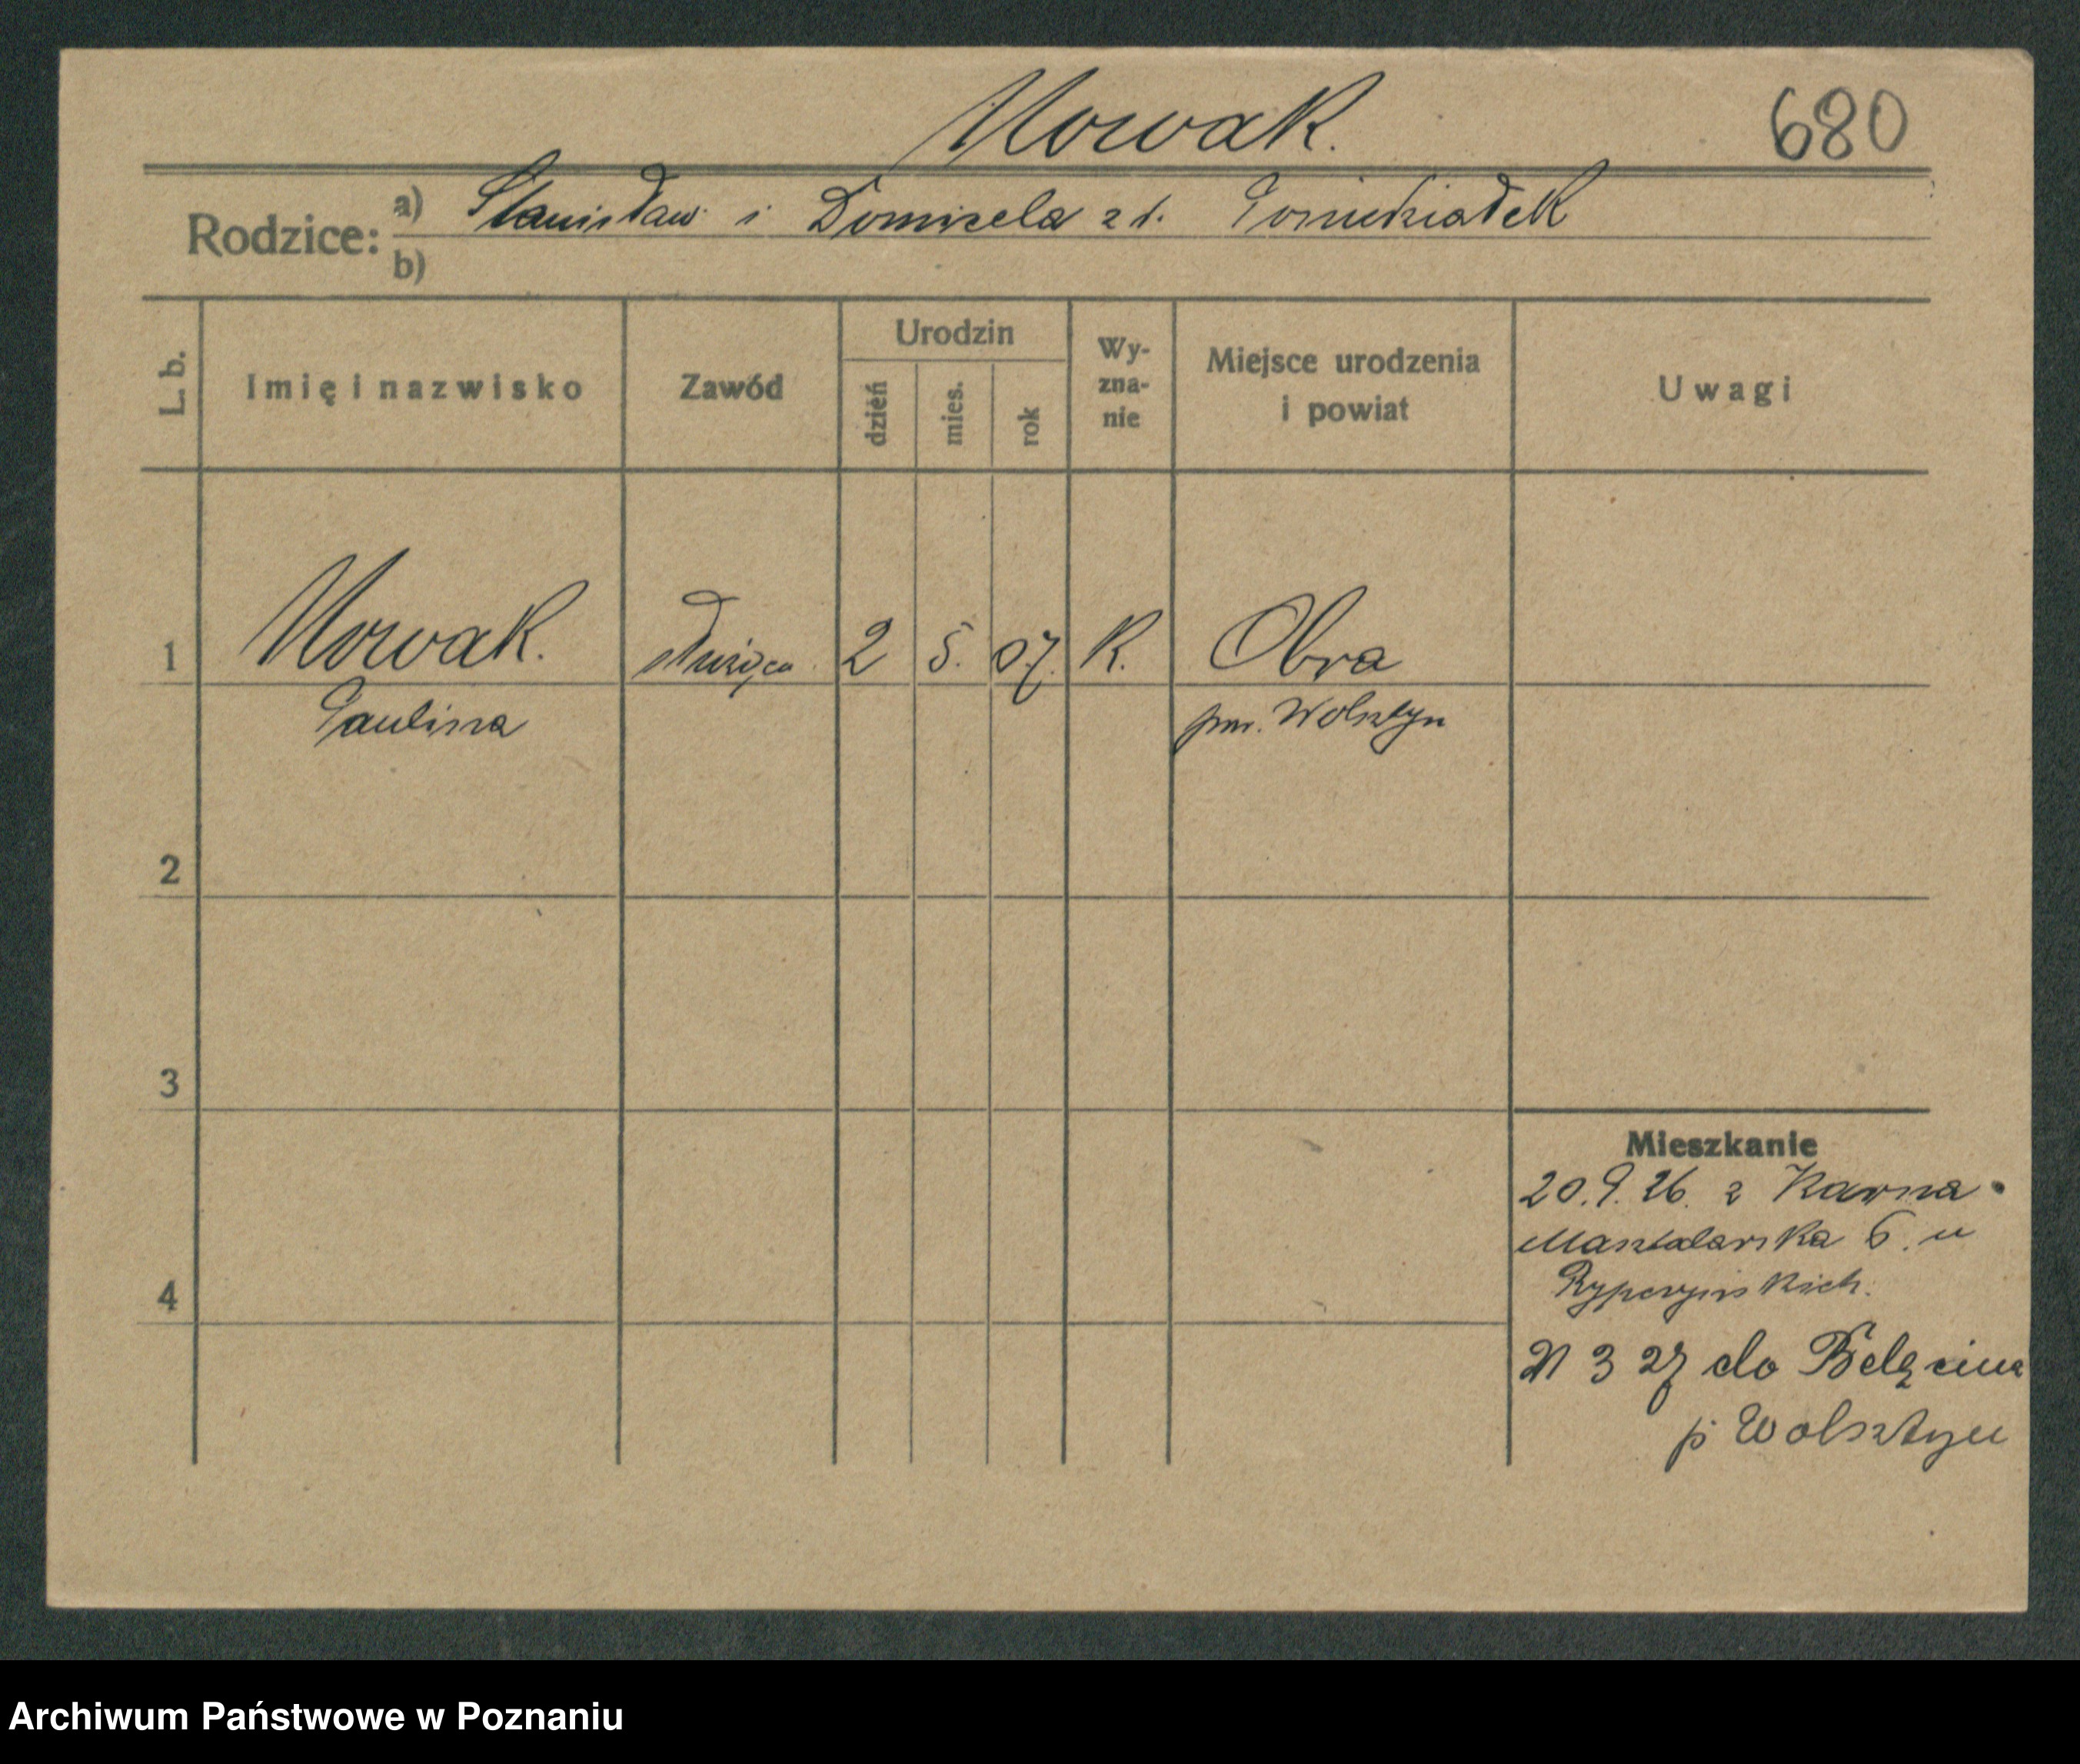 Nowak.
680
Rodzice:
a) Stanisław i Domicela z d. Poniedziałek
b)
L. b.
Imię i nazwisko
Zawód
Urodzin
dzień
mies.
rok
Wy-
zna-
nie
Miejsce urodzenia
i powiat
Uwagi
1 Nowak. służąca. 2 5. 07. K. Obra
Paulina pow. Wolsztyn
2
3
Mieszkanie
20.9.26. z Karna
Masztalarska 6. u
4
21 3 27 do Belęcina
p Wolsztyn
Archiwum Państwowe w Poznaniu